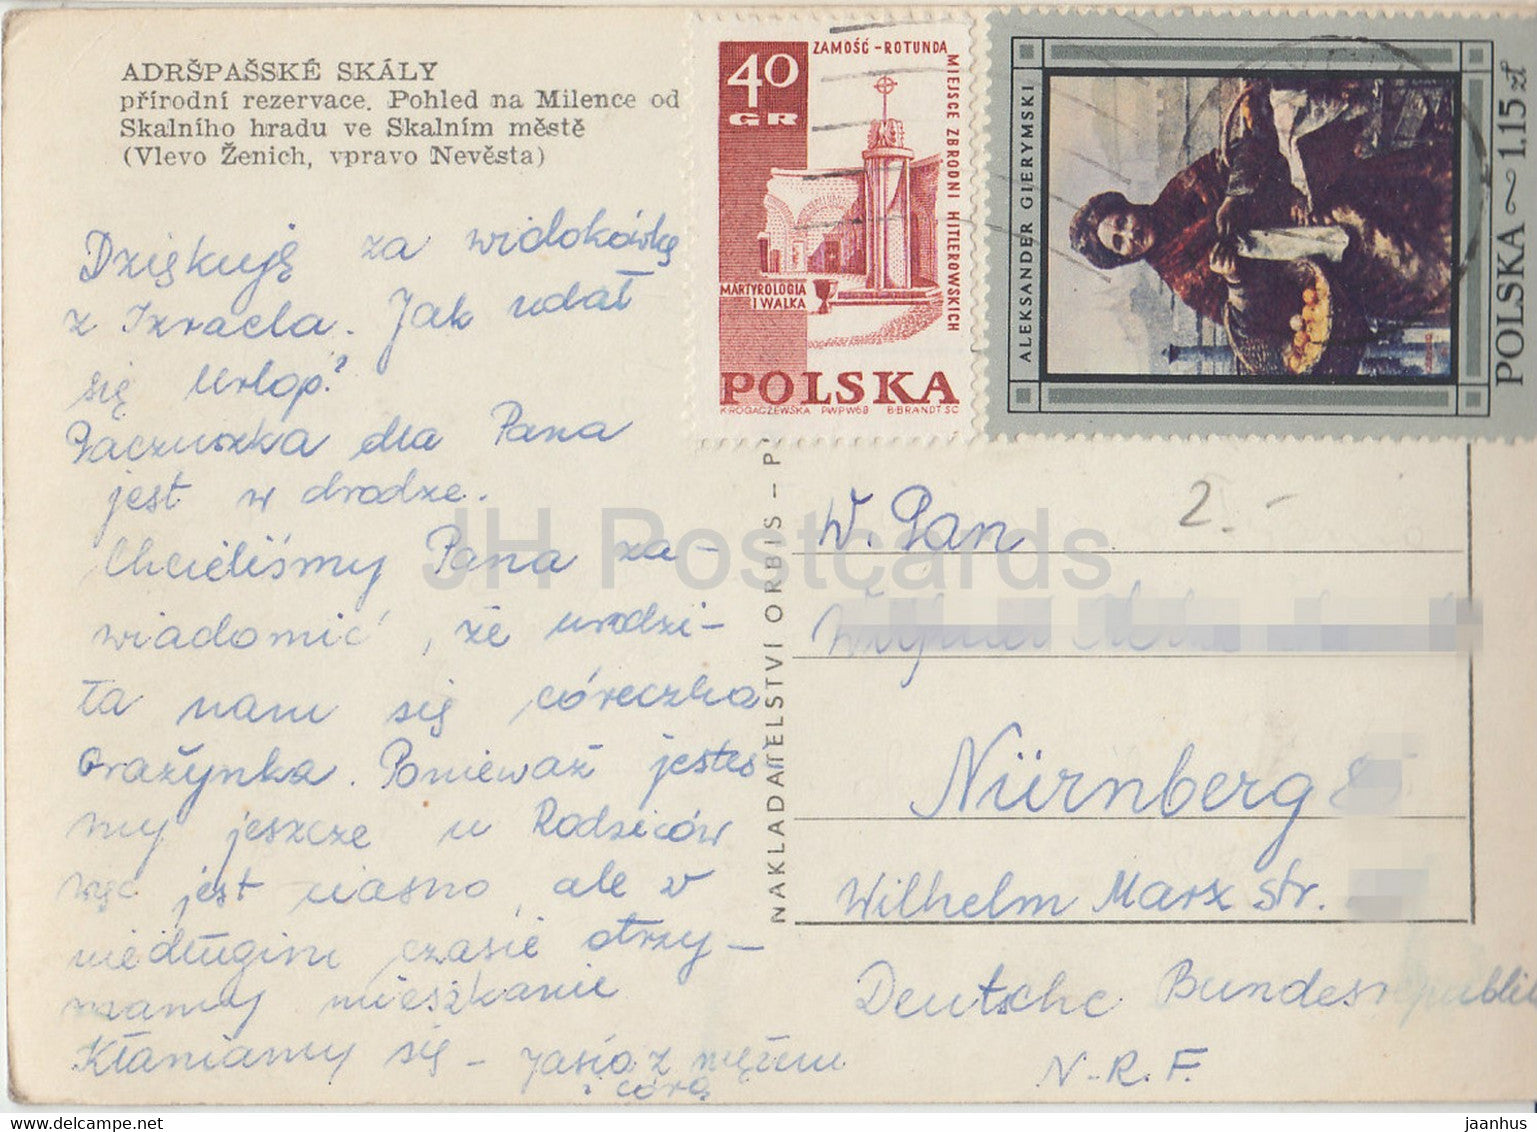 ADRŠPAŠSKÉ SKÁLY
přírodní rezervace. Pohled na Milence od
Skalního hradu ve Skalním městě
(Vlevo Ženich, vpravo Nevěsta)
Dziękuję za widokówkę
z Izraela. Jak udał
się urlop?
Paczuszka dla Pana
jest w drodze.
Chcieliśmy Pana za-
wiadomić, że urodzi-
ła nam się córeczka
Grażynka. Ponieważ jestes
my jeszcze u Rodziców
więc jest ciasno, ale w
niedługim czasie otrzy-
mamy mieszkanie
Kłaniamy się - Jasia z mężem
i córą
40
GR
ZAMOŚĆ - ROTUNDA
MIEJSCE ZBRODNI HITLEROWSKICH
MARTYROLOGIA
I WALKA
POLSKA
K·ROGACZEWSKA PWPW68 B·BRANDT SC
ALEKSANDER GIERYMSKI
POLSKA 1.15 zł
NAKLADATELSTVÍ ORBIS - P
2.-
W. Pan
Nürnberg
Wilhelm Marx str.
Deutsche Bundesrepublik
N-R.F.
JH Postcards
www.delcampe.net
jaanhus